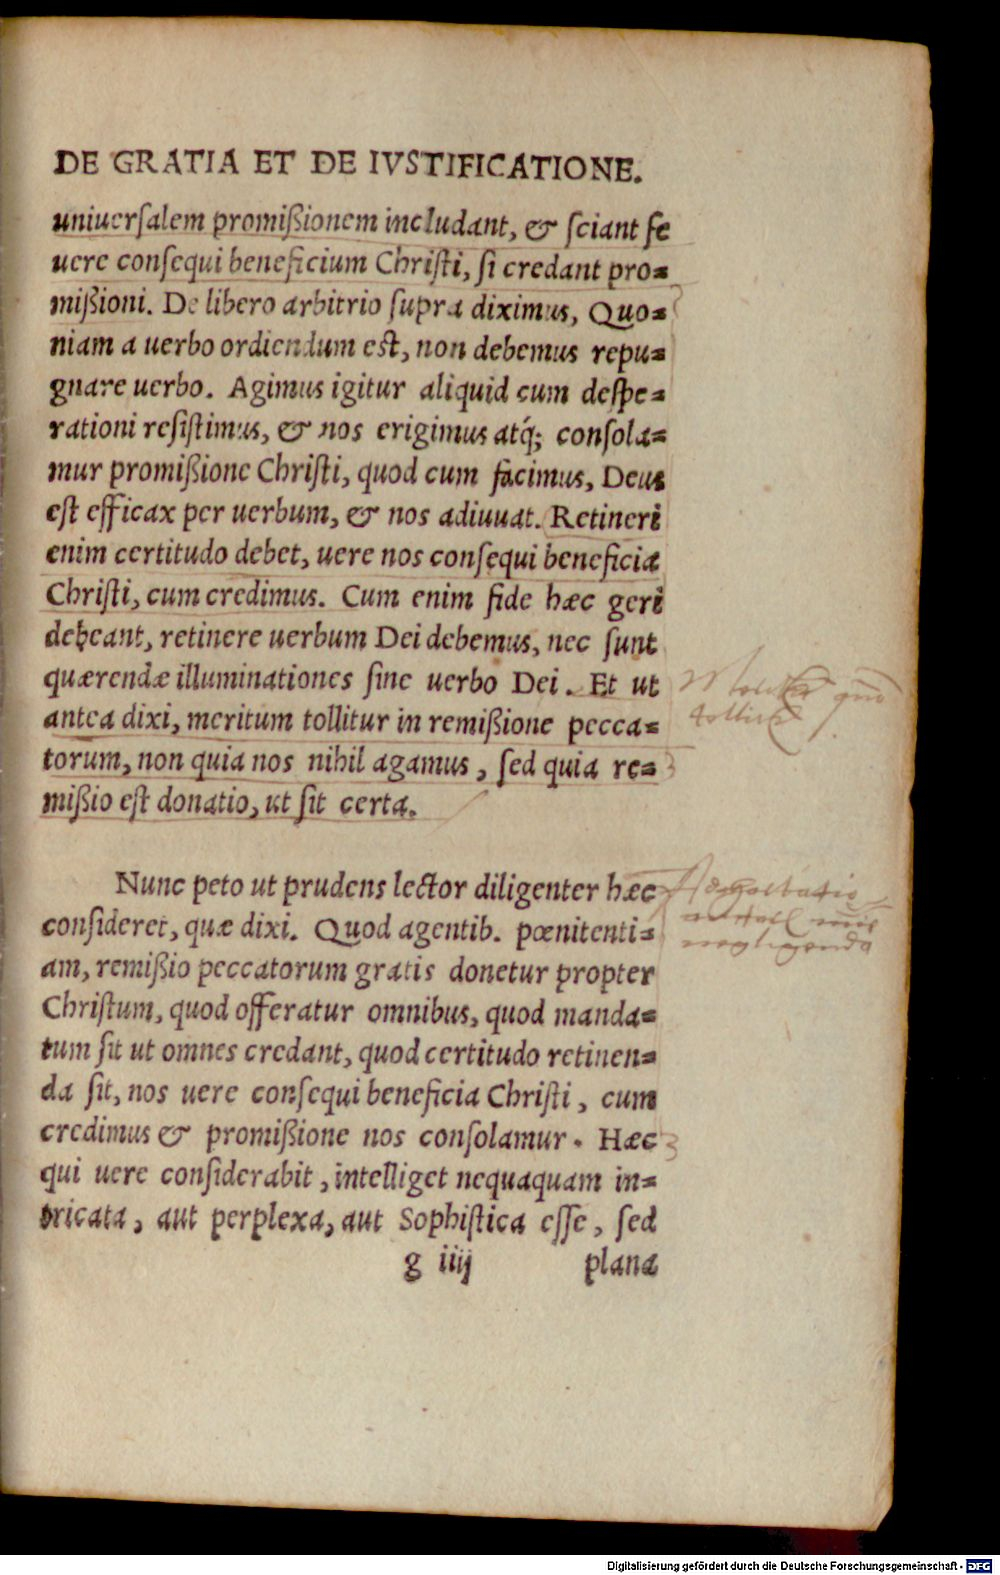 DE GRATIA ET DE IVSTIFICATIONE.
uniuerſalem promißionem includant, & ſciant ſe
uere conſequi beneficium Chriſti, ſi credant pro=
mißioni. De libero arbitrio ſupra diximus, Quo=
niam a uerbo ordiendum est, non debemus repu=
gnare uerbo. Agimus igitur aliquid cum deſpe=
rationi reſiſtimus, & nos erigimus atq́; conſola=
mur promißione Chriſti, quod cum facimus, Deus
eſt efficax per uerbum, & nos adiuuat. Retineri
enim certitudo debet, uere nos conſequi beneficia
Chriſti, cum credimus. Cum enim fide hæc geri
debeant, retinere uerbum Dei debemus, nec ſunt
quærendæ illuminationes ſine uerbo Dei. Et ut
antea dixi, meritum tollitur in remißione pecca=
torum, non quia nos nihil agamus, ſed quia re=
mißio eſt donatio, ut ſit certa.
Nunc peto ut prudens lector diligenter hæc
conſideret, quæ dixi. Quod agentib. pœnitenti=
am, remißio peccatorum gratis donetur propter
Chriſtum, quod offeratur omnibus, quod manda=
tum ſit ut omnes credant, quod certitudo retinen=
da ſit, nos uere conſequi beneficia Chriſti, cum
credimus & promißione nos conſolamur. Hæc
qui uere conſiderabit, intelliget nequaquam in=
tricata, aut perplexa, aut Sophiſtica eſſe, ſed
g iiij plana
negligenda
Digitalisierung gefördert durch die Deutsche Forschungsgemeinschaft - DFG